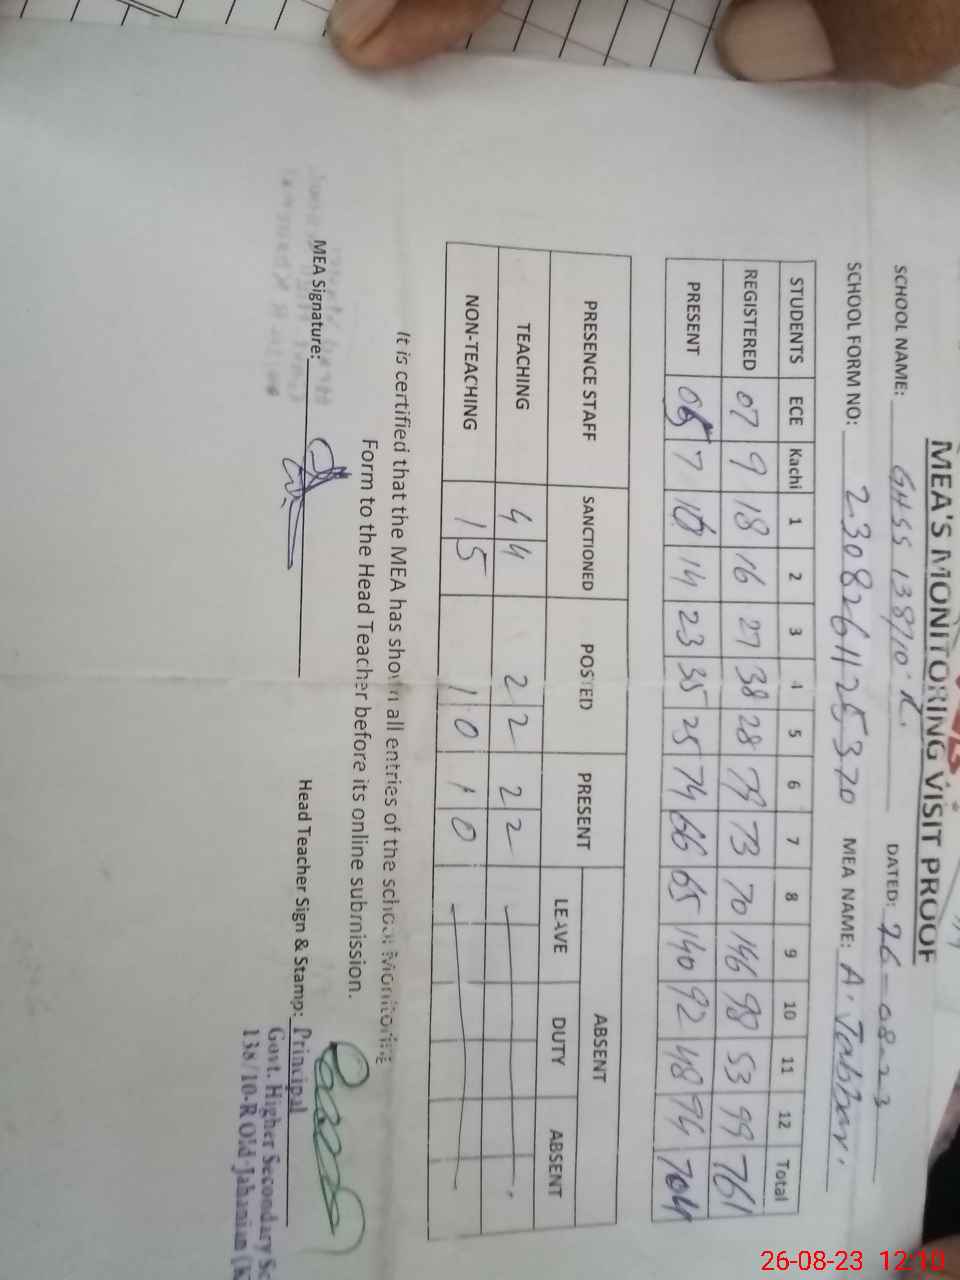 MEA'S MONITORING VISIT PROOF
SCHOOL NAME: GHSS 138/10.R. DATED: 26-08-23
SCHOOL FORM NO: 2308261125370 MEA NAME: A. Jabbar.
STUDENTS ECE Kachi 1 2 3 4 5 6 7 8 9 10 11 12 Total
REGISTERED 07 9 18 16 27 38 28 79 73 70 146 98 53 99 761
PRESENT 05 7 10 14 23 35 25 74 66 65 140 92 48 94 704
PRESENCE STAFF SANCTIONED POSTED PRESENT ABSENT
LEAVE DUTY ABSENT
TEACHING 44 22 22
NON-TEACHING 15 10 10
It is certified that the MEA has shown all entries of the school Monitoring
Form to the Head Teacher before its online submission.
MEA Signature: Head Teacher Sign & Stamp: Principal
Govt. Higher Secondary Sc
138/10-R Old Jahanian (K
26-08-23 12:10